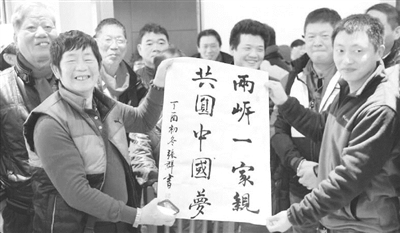 兩岸一家親
共圓中國夢
丁酉初冬張群書